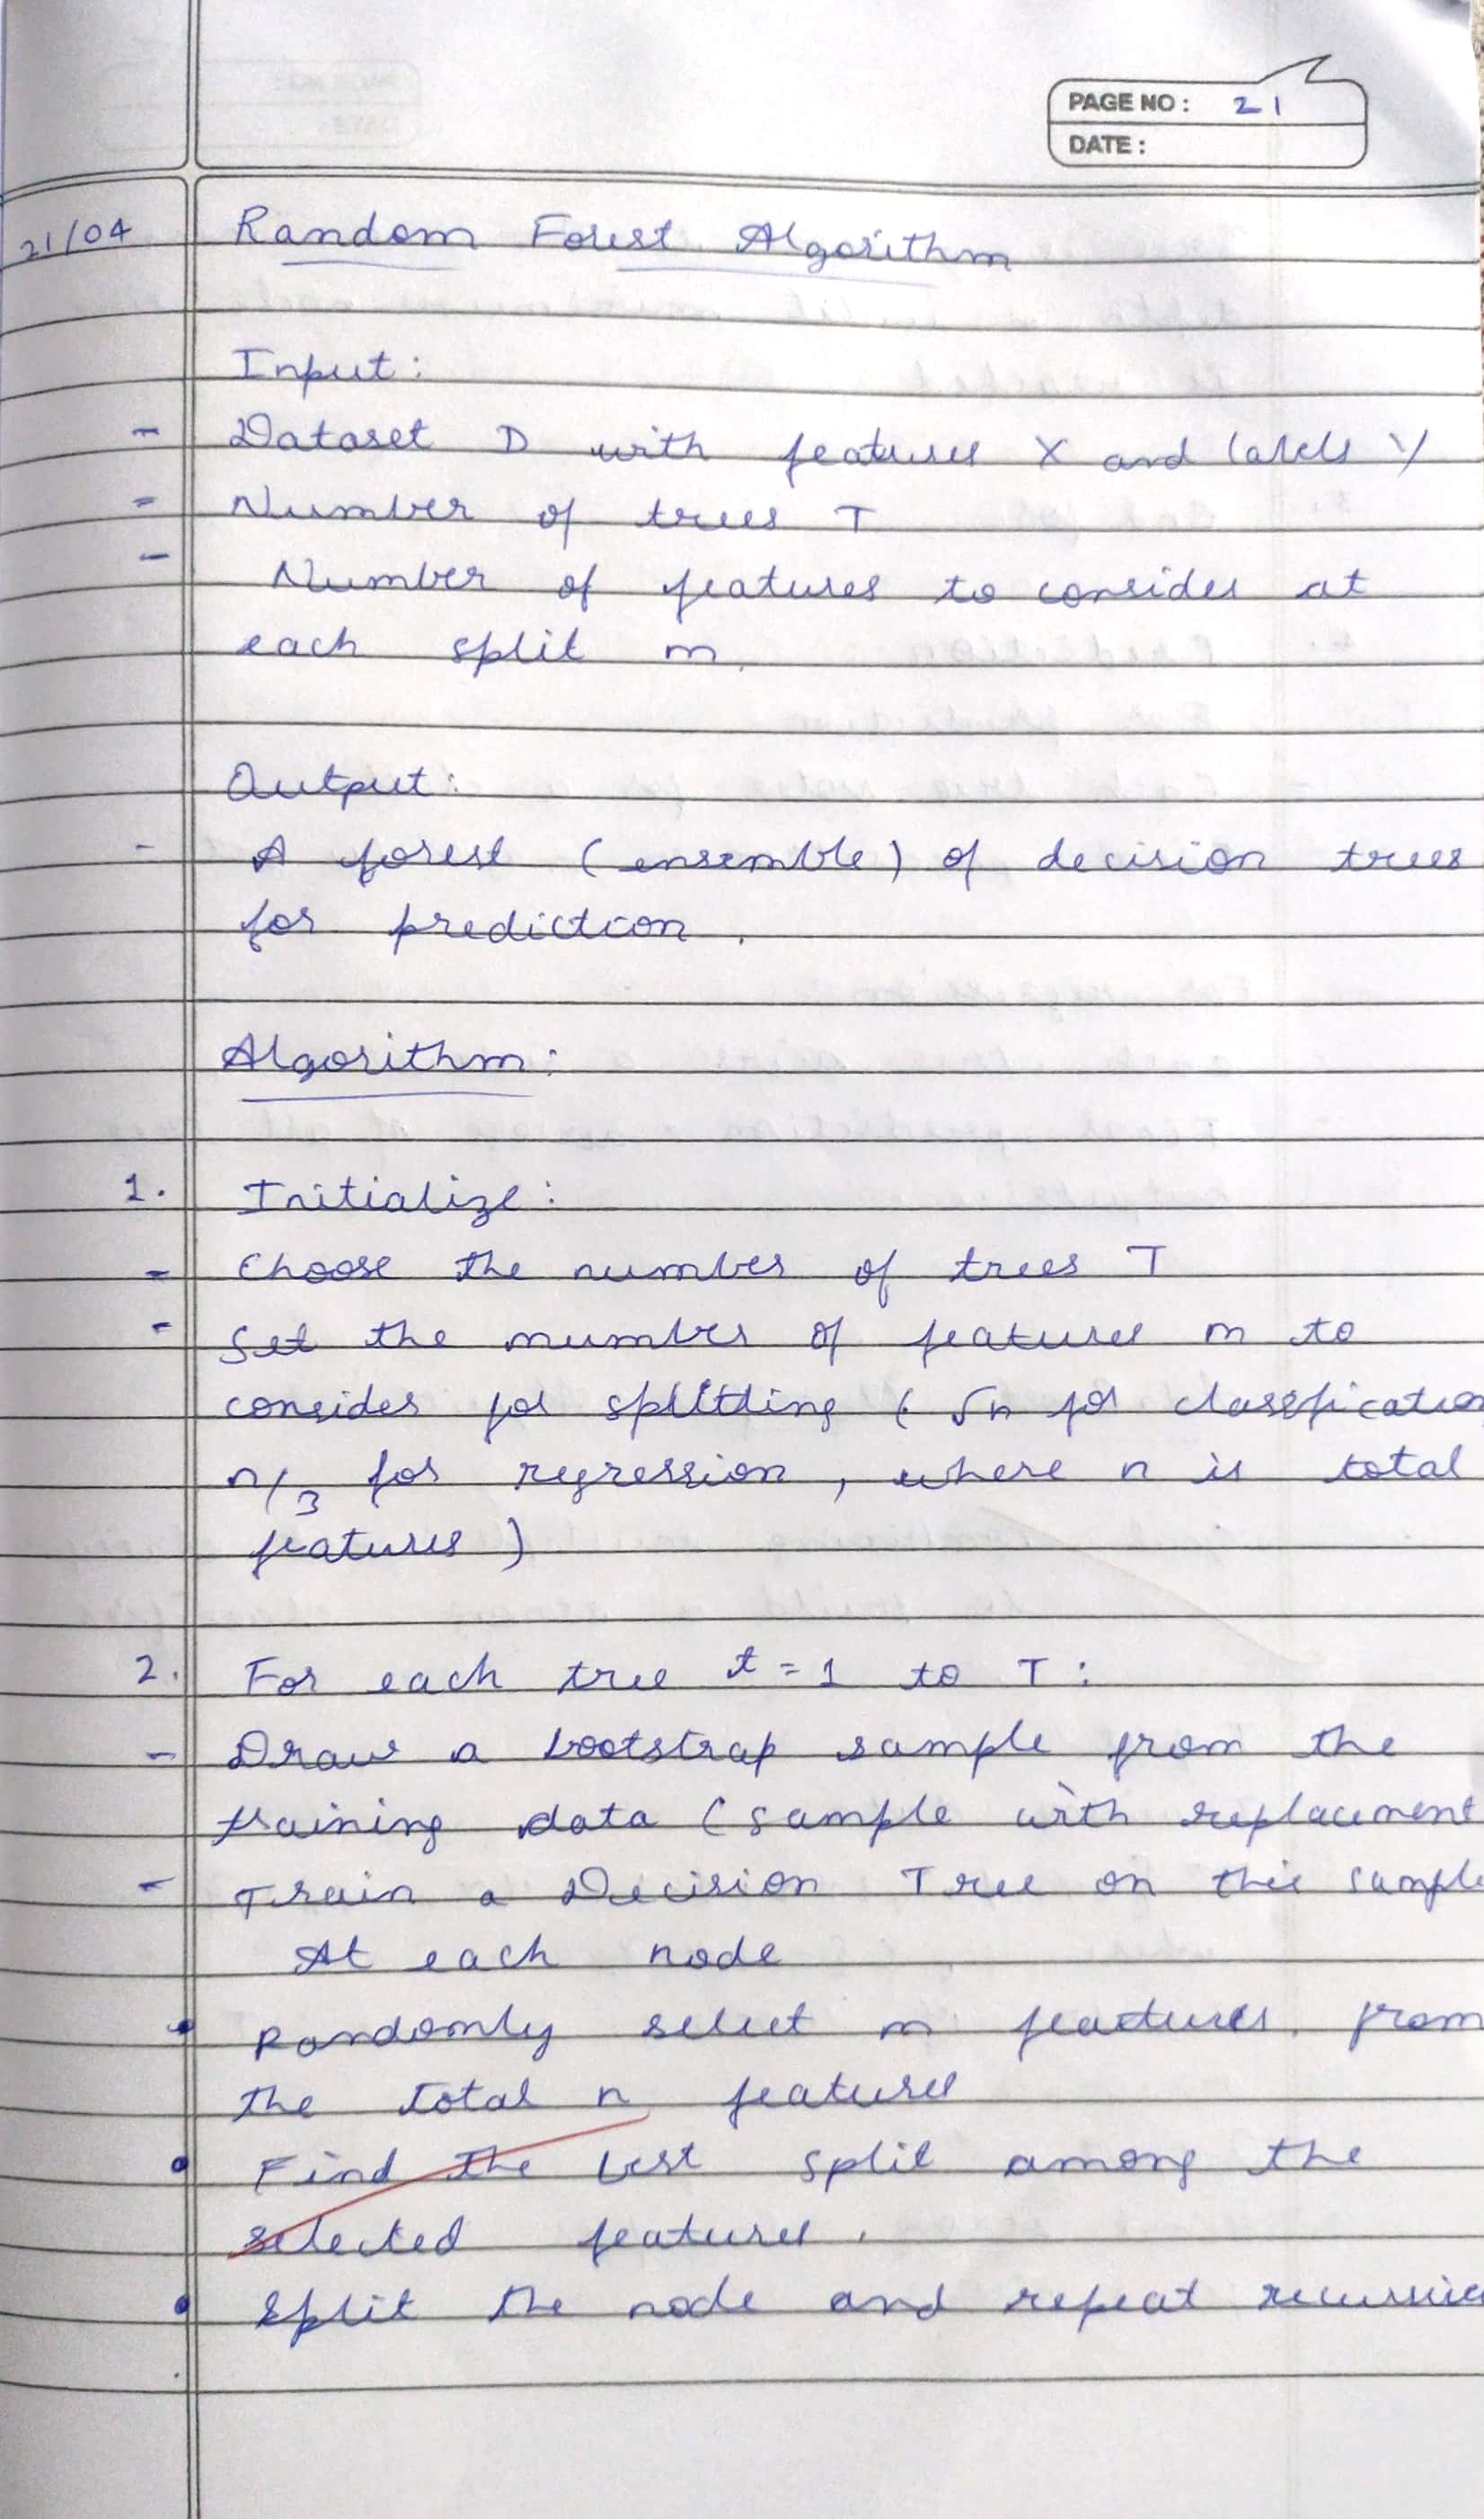 PAGE NO : 21
DATE :
21/04 Random Forest Algorithm
Input:
- Dataset D with features X and labels Y
- Number of trees T
- Number of features to consider at
each split m.
Output:
- A forest (ensemble) of decision trees
for prediction.
Algorithm:
1. Initialize:
- Choose the number of trees T
- Set the number of features m to
consider for splitting ( √n for classification
n/3 for regression, where n is total
features )
2. For each tree t = 1 to T :
- Draw a bootstrap sample from the
training data (sample with replacement
- Train a Decision Tree on this sample
At each node
• Randomly select m features from
the total n features
• Find the best split among the
selected features.
• Split the node and repeat recursive